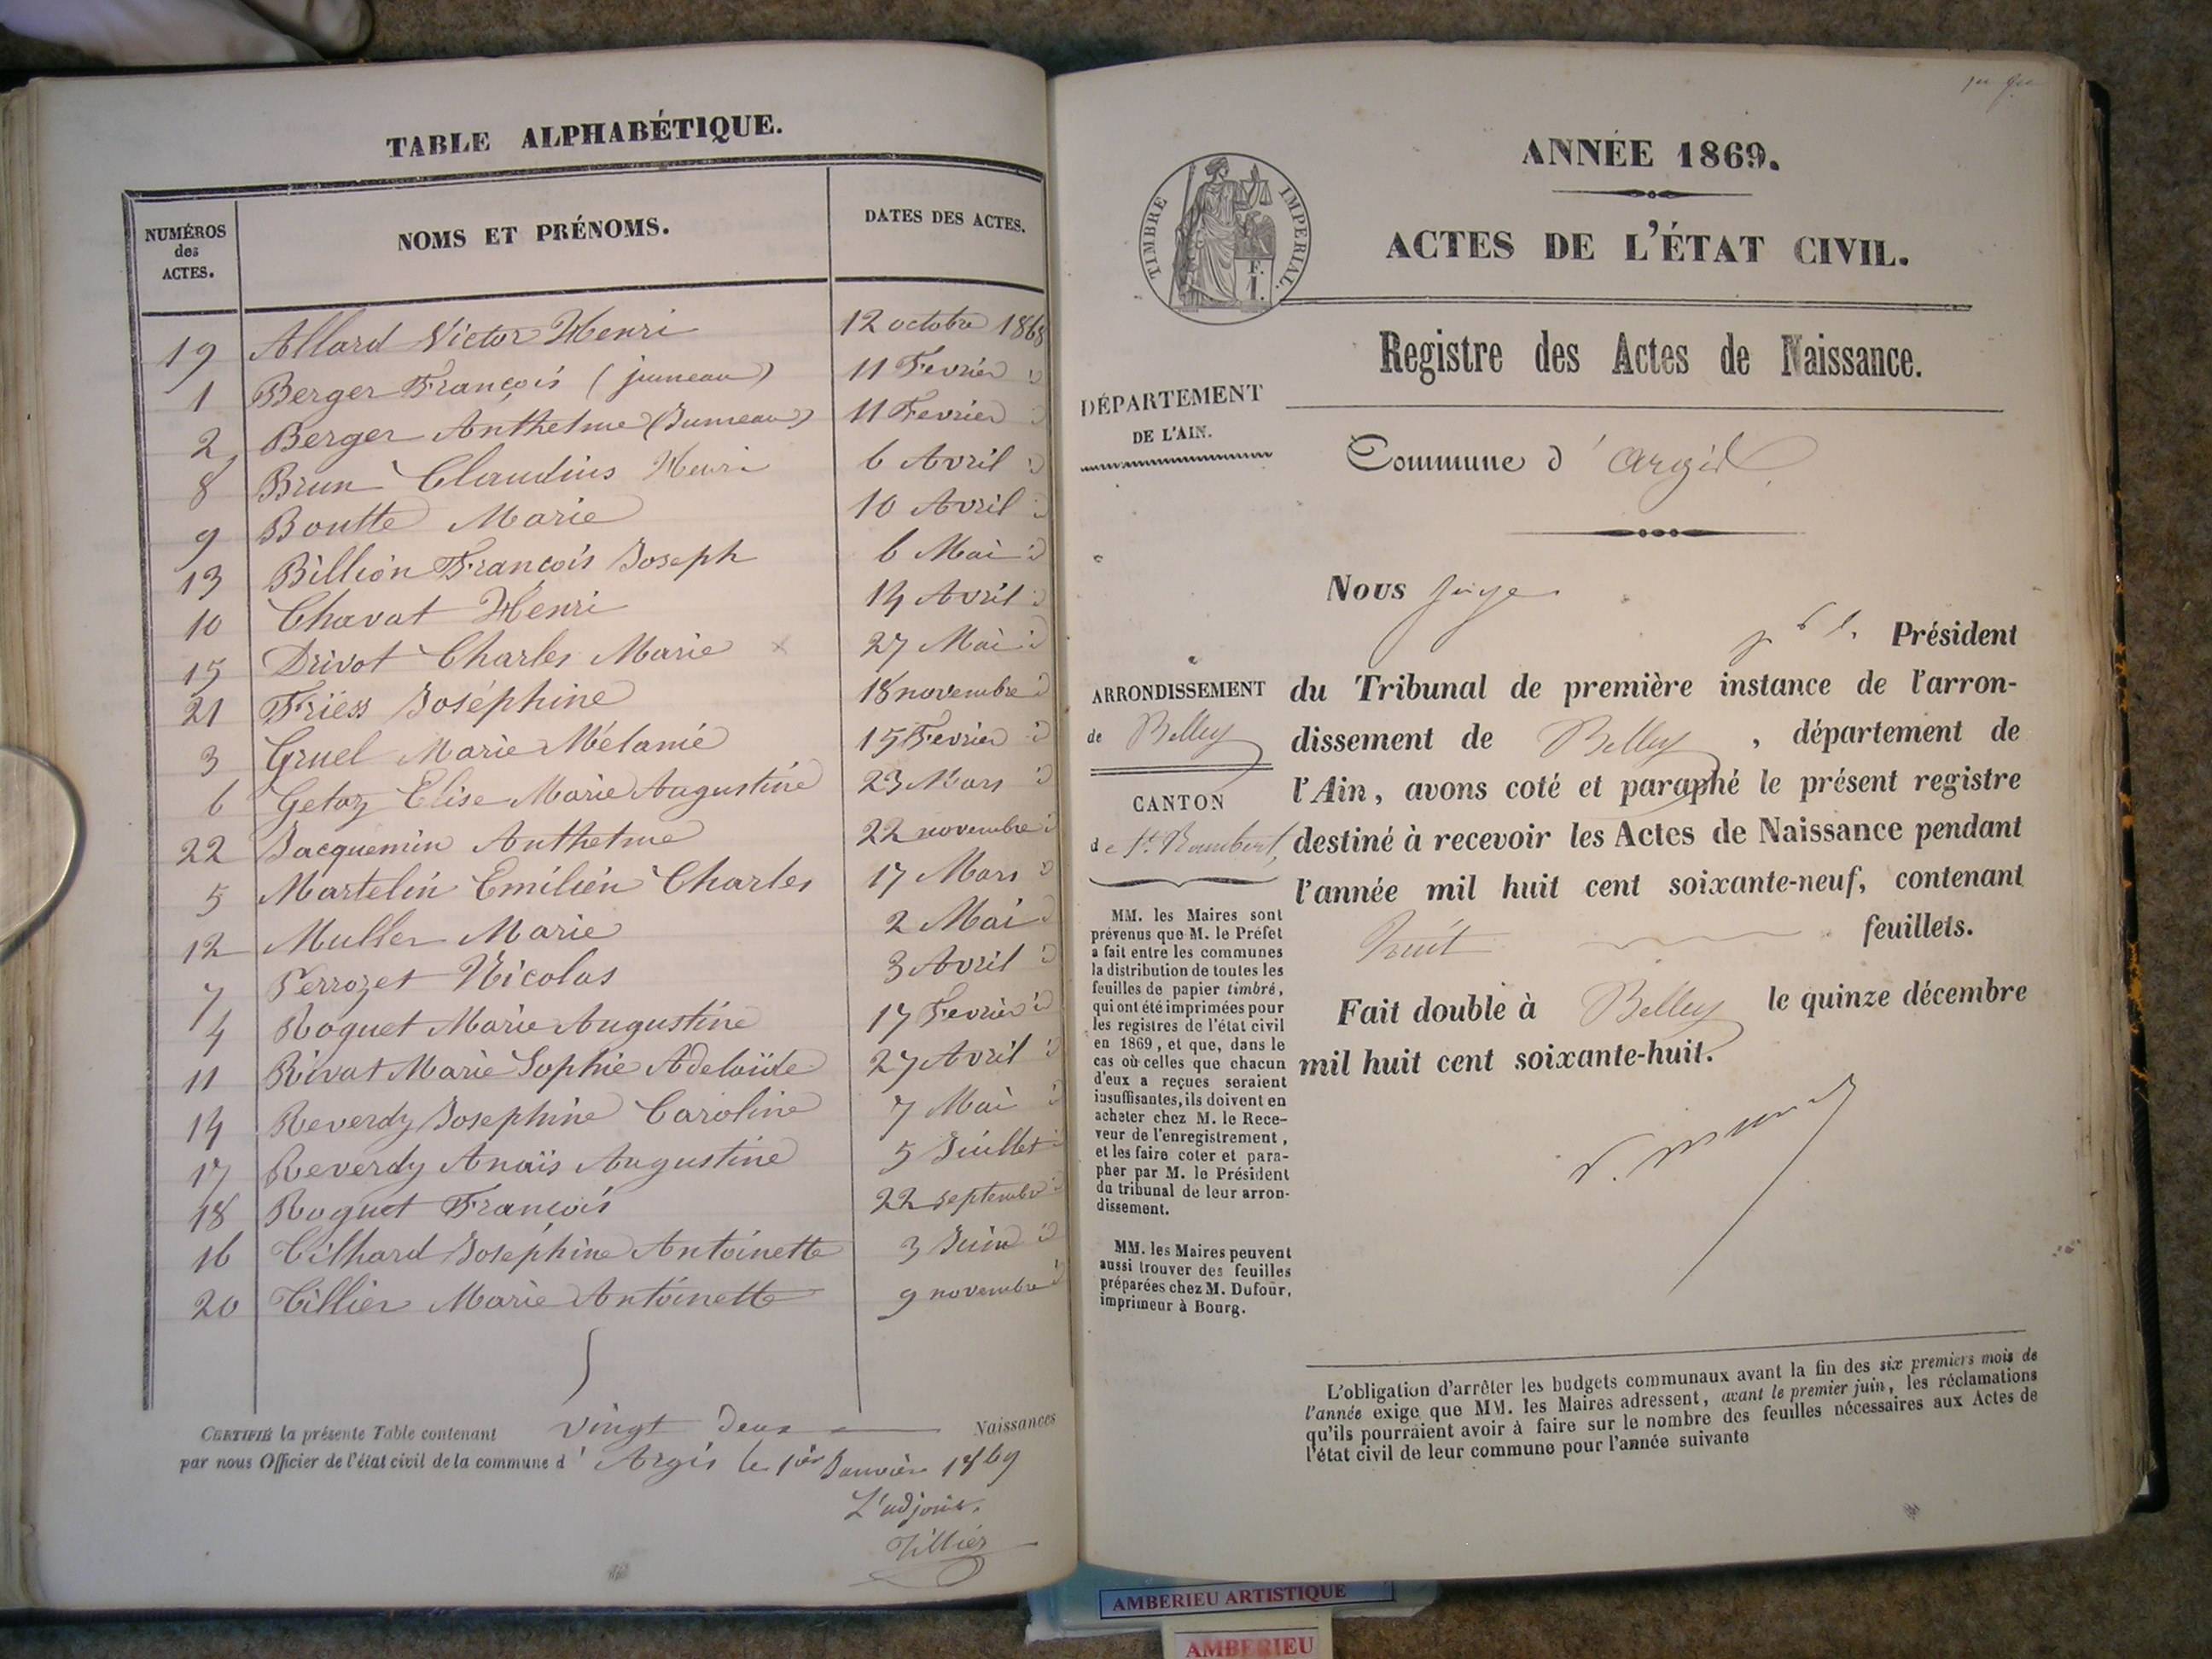 TABLE ALPHABÉTIQUE.
NUMÉROS des ACTES. NOMS ET PRÉNOMS. DATES DES ACTES.
19 Allard Victor Henri 12 octobre 1868
1 Berger François (jumeau) 11 Fevrier d
2 Berger Anthelme (Jumeau) 11 Fevrier d
8 Brun Claudius Henri 6 Avril d
9 Boutte Marie 10 Avril d
13 Billion François Joseph 6 Mai d
10 Chavat Henri 14 Avril d
15 Drivot Charles Marie x 27 Mai d
21 Friess Joséphine 18 novembre d
3 Gruel Marie Mélanie 15 Fevrier d
6 Getaz Elise Marie Augustine 23 Mars d
22 Jacquemin Anthelme 22 novembre d
5 Martelin Emilien Charles 17 Mars d
12 Muller Marie 2 Mai d
7 Perrozet Nicolas 3 Avril d
4 Roguet Marie Augustine 17 Fevrier d
11 Rivat Marie Sophie Adelaïde 27 Avril d
14 Reverdy Josephine Caroline 7 Mai d
17 Reverdy Anaïs Augustine 5 Juillet d
18 Roguet François 22 septembre d
16 Tilhard Joséphine Antoinette 3 Juin d
20 Tillier Marie Antoinette 9 novembre d
CERTIFIÉ la présente Table contenant vingt deux Naissances
par nous Officier de l'état civil de la commune d'Argis le 1er Janvier 1869
L'adjoint,
Tillier
ANNÉE 1869.
ACTES DE L'ÉTAT CIVIL.
TIMBRE IMPERIAL.
F.
1.
Registre des Actes de Naissance.
DÉPARTEMENT
DE L'AIN.
Commune d'Argis
ARRONDISSEMENT
de Belley
CANTON
de St. Rambert,
MM. les Maires sont
prévenus que M. le Préfet
a fait entre les communes
la distribution de toutes les
feuilles de papier timbré,
qui ont été imprimées pour
les registres de l'état civil
en 1869, et que, dans le
cas où celles que chacun
d'eux a reçues seraient
insuffisantes, ils doivent en
acheter chez M. le Rece-
veur de l'enregistrement,
et les faire coter et para-
pher par M. le Président
du tribunal de leur arron-
dissement.
MM. les Maires peuvent
aussi trouver des feuilles
préparées chez M. Dufour,
imprimeur à Bourg.
Nous Juge
Président
du Tribunal de première instance de l'arron-
dissement de Belley, département de
l'Ain, avons coté et paraphé le présent registre
destiné à recevoir les Actes de Naissance pendant
l'année mil huit cent soixante-neuf, contenant
huit feuillets.
Fait double à Belley le quinze décembre
mil huit cent soixante-huit.
L'obligation d'arrêter les budgets communaux avant la fin des six premiers mois de
l'année exige que MM. les Maires adressent, avant le premier juin, les réclamations
qu'ils pourraient avoir à faire sur le nombre des feuilles nécessaires aux Actes de
l'état civil de leur commune pour l'année suivante
AMBERIEU ARTISTIQUE
AMBERIEU